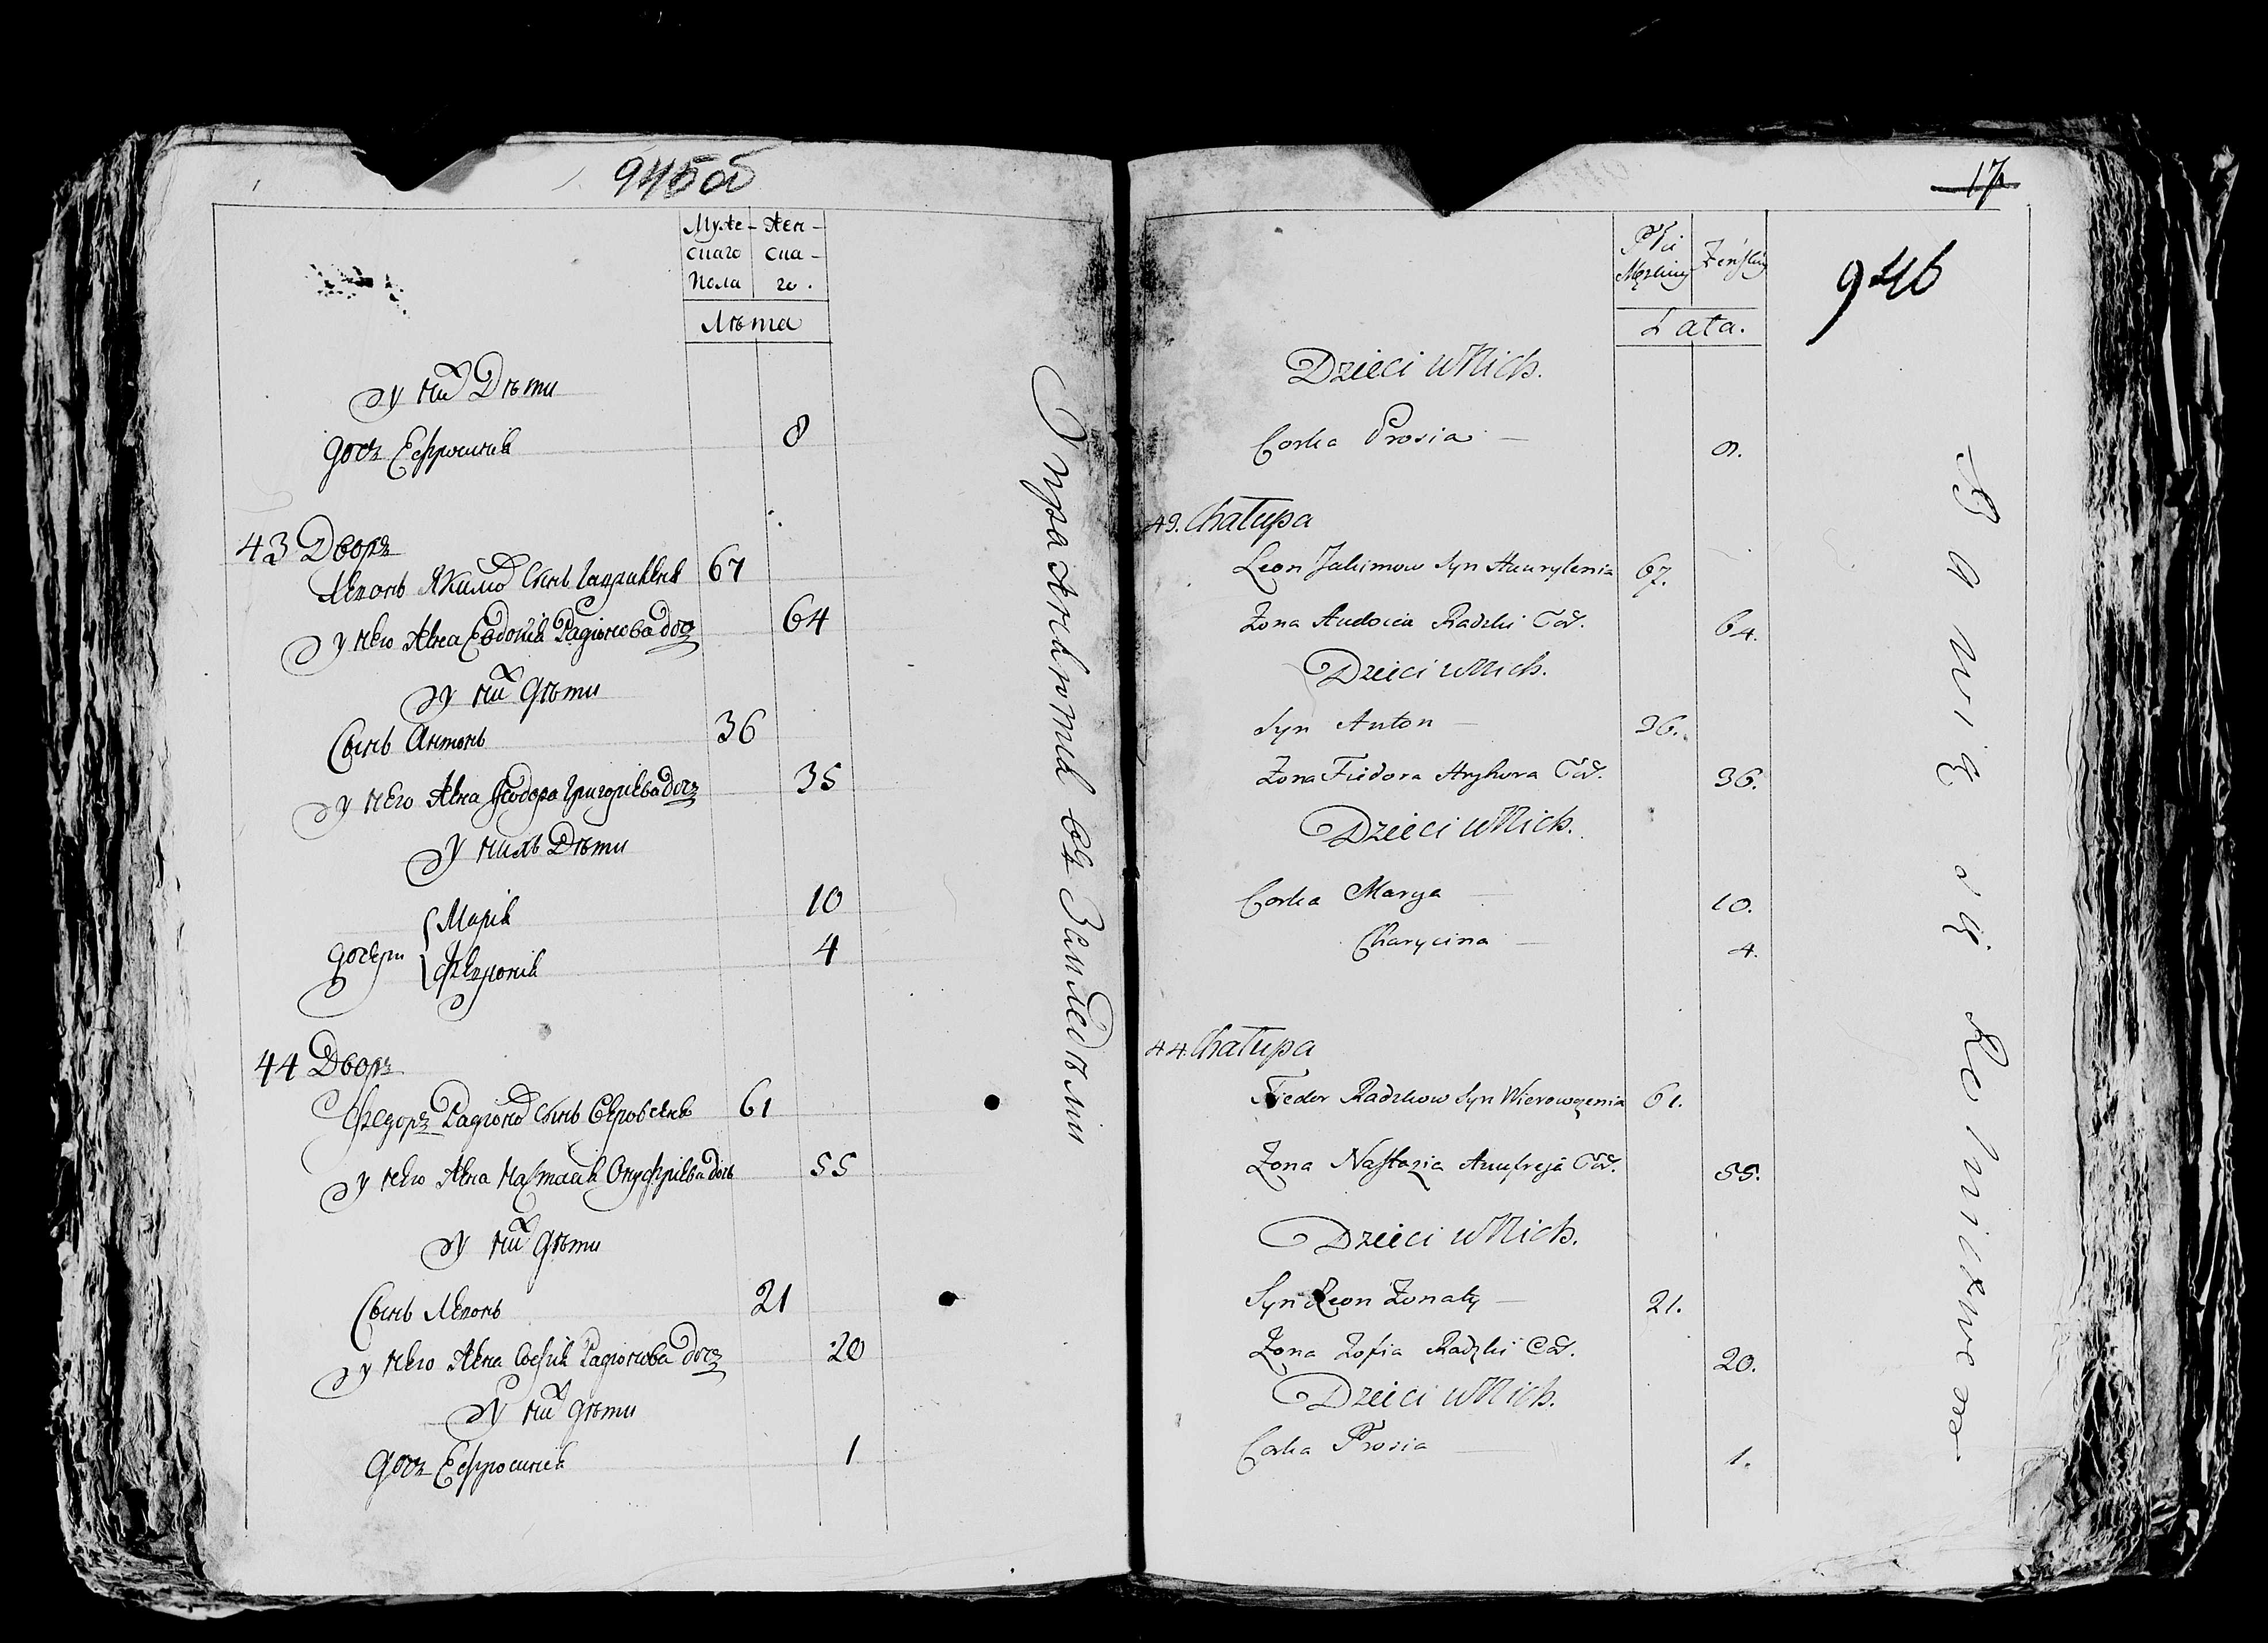 945об
Муже- Жен-
скаго ска-
пола го.
Лѣта
У них Дѣти
дочь Ефросинія 8
43 Дворъ
Леонъ Якимов Сынъ 67
у него Жена Евдокія Радіонова дочь 64
У них дѣти
Сынъ Антонъ 36
у него Жена Феодора Григоріева дочь 35
У нихъ Дѣти
дочери Марія 10
4
44 Дворъ
Федоръ Радіонов Сынъ 61
у него Жена Настасія Онуфріева дочь 55
У них дѣти
Сынъ Леонъ 21
у него Жена Софія Радіонова дочь 20
У них дѣти
дочь Ефросинія 1
17
946
Płci
Męskiey Żeńskiey
Lata.
Dzieci w Nich.
Corka Prosia 8.
43. Chałupa
Leon Jakimow Syn Hawrylenia 67.
Zona Audocia Radzki Cod. 64.
Dzieci w Nich.
Syn Anton 36.
Zona Fiedora Hryhora Cod. 36.
Dzieci w Nich.
Corka Marya 10.
Charycina 4.
44. Chałupa
Fiedor Radzkow Syn 61.
Zona Nastazia Anufreja Cod. 55.
Dzieci w Nich.
Syn Leon Zonaty 21.
Zona Zofia Radzki Cod. 20.
Dzieci w Nich.
Corka Prosia 1.